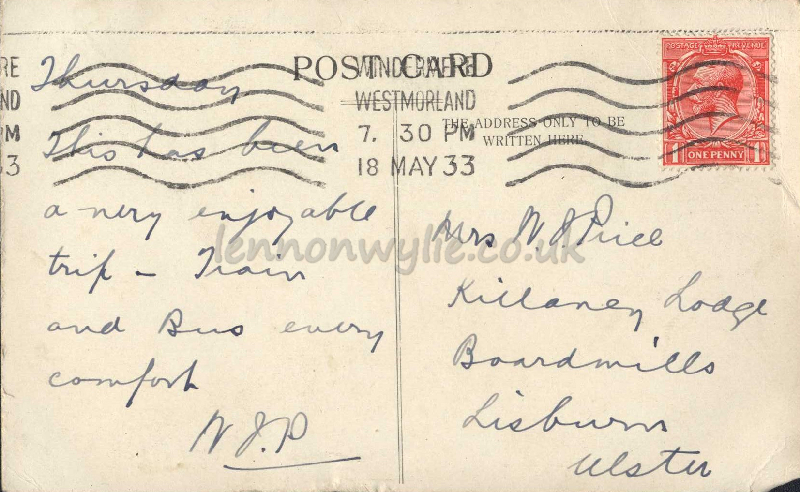 POST CARD
THE ADDRESS ONLY TO BE
WRITTEN HERE
WINDERMERE
WESTMORLAND
7. 30 PM
18 MAY 33
RE
ND
PM
33
POSTAGE REVENUE
1 ONE PENNY 1
Thursday
This has been
a very enjoyable
trip – Train
and Bus every
comfort
W J. P
Mrs W J Price
Killaney Lodge
Boardmills
Lisburn
Ulster
lennonwylie.co.uk